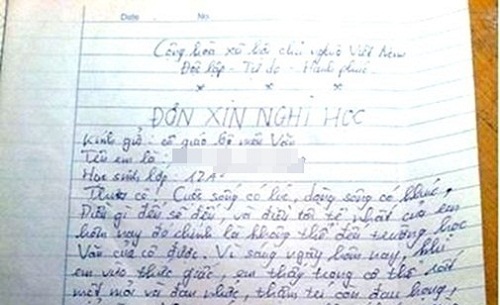 Date No
Cộng hòa xã hội chủ nghĩa Việt Nam
Độc lập - Tự do - Hạnh phúc
x x x
ĐƠN XIN NGHỈ HỌC
Kính gửi: cô giáo bộ môn Văn
Tên em là:
Học sinh lớp: 12A
Thưa cô! Cuộc sống có lúc, dòng sông có khúc,
Điều gì đến sẽ đến, và điều tồi tệ nhất của em
hôm nay đó chính là không thể đến trường học
Văn của cô được. Vì sáng ngày hôm nay, khi
em vừa thức giấc, em thấy trong cơ thể rất
mệt mỏi và đau nhức, thậm trí còn đau họng,